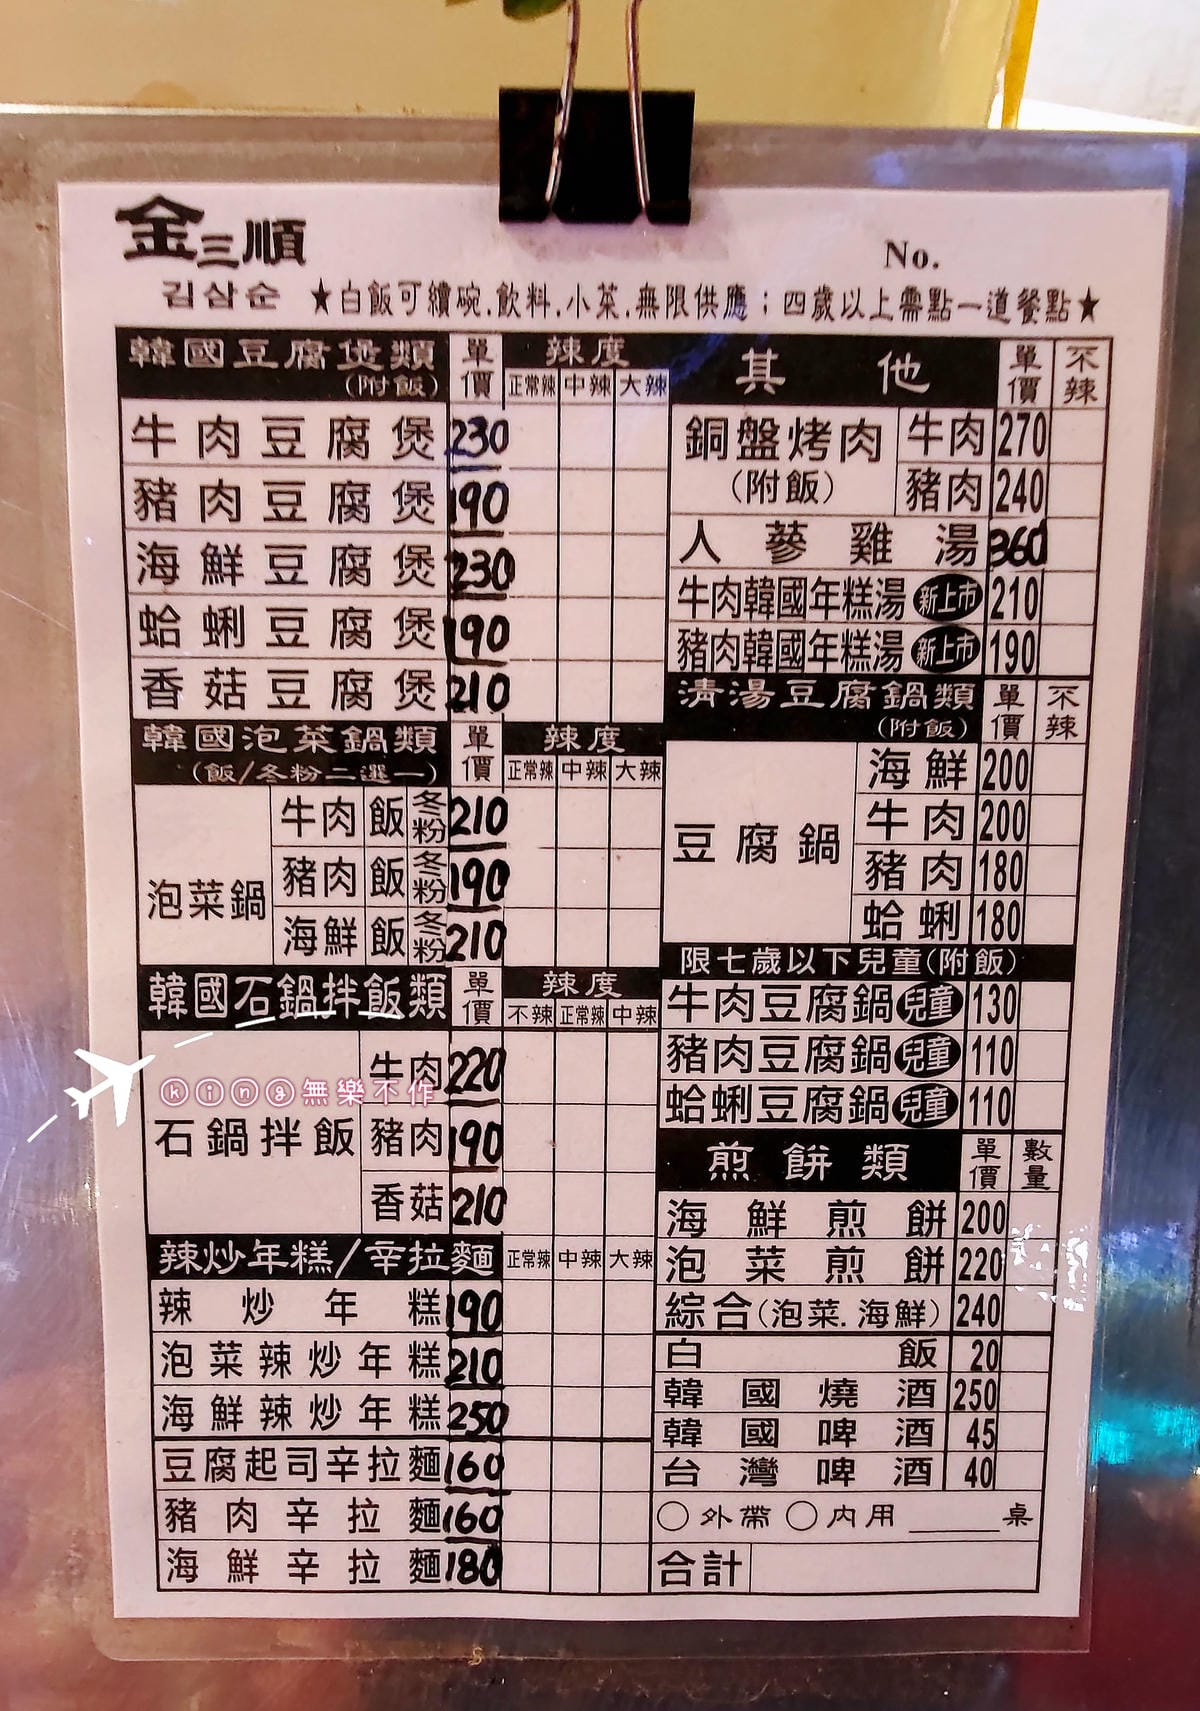 金三順
No.
김삼순 ★白飯可續碗.飲料.小菜.無限供應；四歲以上需點一道餐點★
韓國豆腐煲類 單價 辣度
(附飯) 正常辣 中辣 大辣
牛肉豆腐煲 230
豬肉豆腐煲 190
海鮮豆腐煲 230
蛤蜊豆腐煲 190
香菇豆腐煲 210
韓國泡菜鍋類 單價 辣度
(飯/冬粉二選一) 正常辣 中辣 大辣
泡菜鍋
牛肉 飯 冬粉 210
豬肉 飯 冬粉 190
海鮮 飯 冬粉 210
韓國石鍋拌飯類 單價 辣度
不辣 正常辣 中辣
石鍋拌飯
牛肉 220
豬肉 190
香菇 210
辣炒年糕/辛拉麵 正常辣 中辣 大辣
辣炒年糕 190
泡菜辣炒年糕 210
海鮮辣炒年糕 250
豆腐起司辛拉麵 160
豬肉辛拉麵 160
海鮮辛拉麵 180
其他 單價 不辣
銅盤烤肉 牛肉 270
(附飯) 豬肉 240
人蔘雞湯 360
牛肉韓國年糕湯 新上市 210
豬肉韓國年糕湯 新上市 190
清湯豆腐鍋類 單價 不辣
(附飯)
豆腐鍋
海鮮 200
牛肉 200
豬肉 180
蛤蜊 180
限七歲以下兒童(附飯)
牛肉豆腐鍋 兒童 130
豬肉豆腐鍋 兒童 110
蛤蜊豆腐鍋 兒童 110
煎餅類 單價 數量
海鮮煎餅 200
泡菜煎餅 220
綜合(泡菜.海鮮) 240
白飯 20
韓國燒酒 250
韓國啤酒 45
台灣啤酒 40
○外帶 ○內用 ____桌
合計
king無樂不作